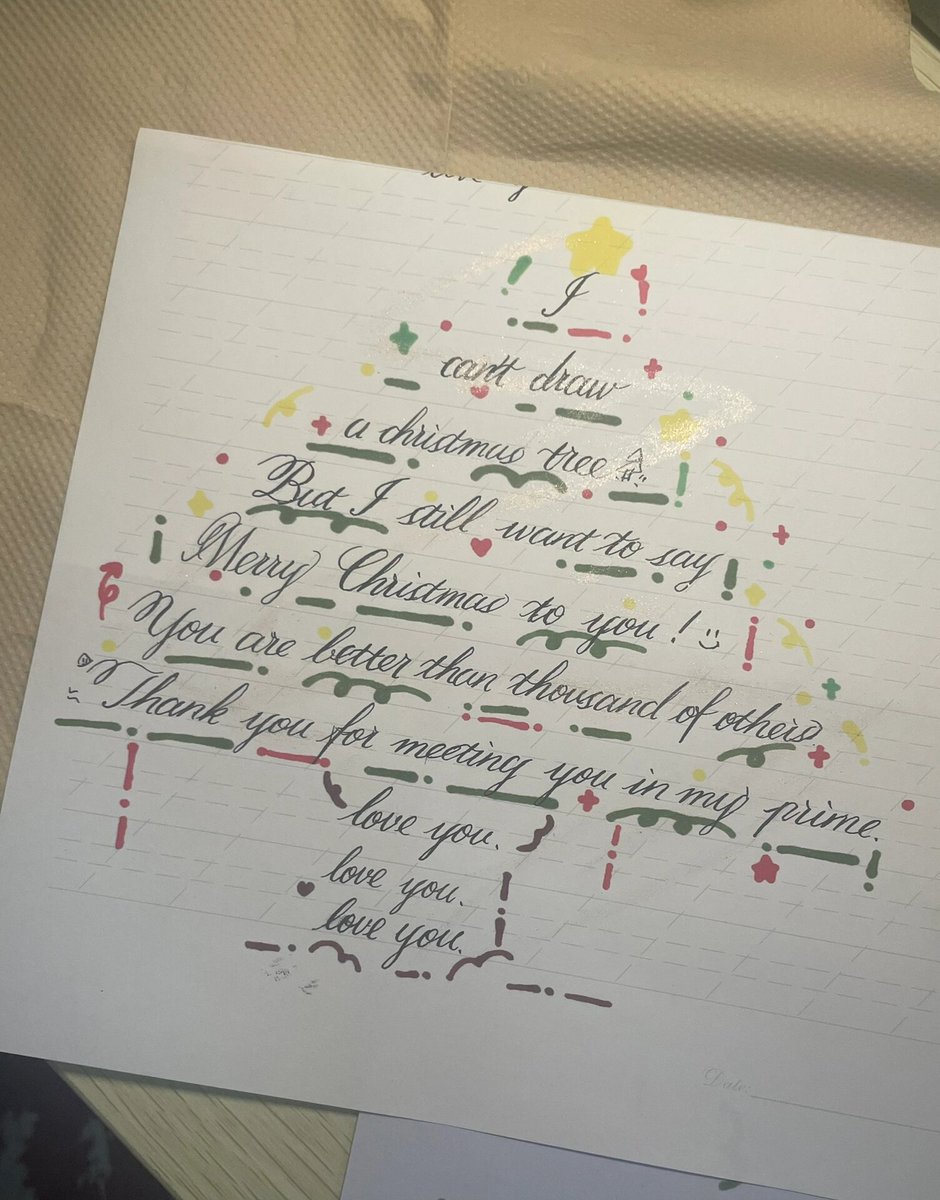 I
can't draw
a christmas tree
But I still want to say
Merry Christmas to you !
You are better than thousand of others.
Thank you for meeting you in my prime.
love you.
love you.
love you.
Date: